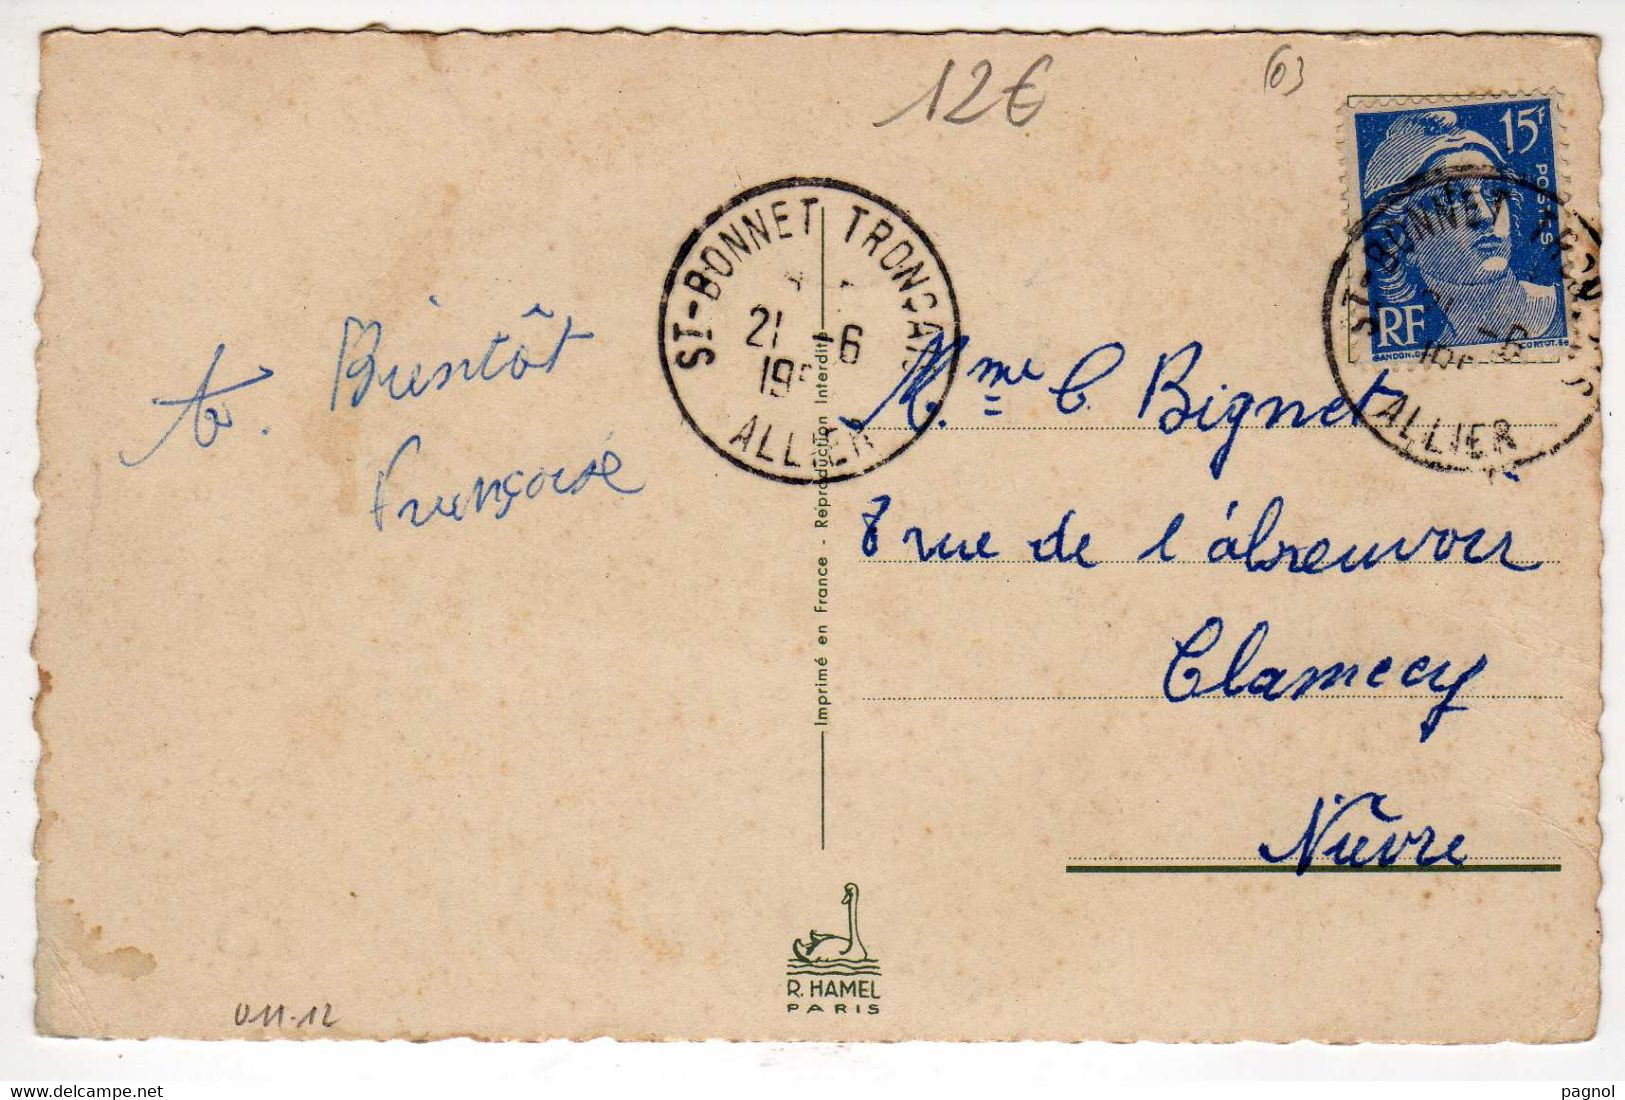 12€
(03)
15F
POSTES
RF
GANDON.
CORTOT.
ST-BONNET TRONÇAIS
21 -6
19
ALLIER
ST-BONNET TRONÇAIS
-6
ALLIER
A. Bientôt
Françoise
Mme C. Bignet
8 rue de l'abreuvoir
Clamecy
Nièvre
Imprimé en France - Reproduction Interdite
R. HAMEL
PARIS
011-12
pagnol